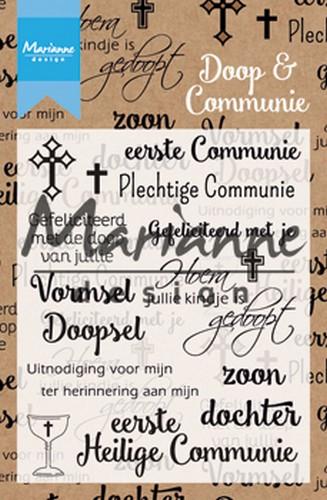 Marianne
design
kindje is
gedoopt
Doop &
Communie
Plech
voor mijn
zoon
Vormsel
eerste Communie
Plechtige Communie
Gefeliciteerd
met de doop
van jullie
Gefeliciteerd met je
Marianne
design
Hoera
Vormsel
jullie kindje is
gedoopt
Doopsel
Uitnodiging voor mijn
zoon
ter herinnering aan mijn
dochter
eerste
Heilige Communie